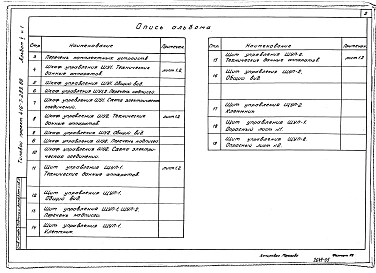 Опись альбома
Стр.
Наименование
Примечан.
3
Перечень комплектных устройств
4
Шкаф управления ШУ1. Технические
данные аппаратов.
лист 1.2
5
Шкаф управления ШУ1. Общий вид.
6
Шкаф управления ШУ1. Перечень надписей
7
Шкаф управления ШУ1. Схема электрических
соединений.
8
Шкаф управления ШУ2. Технические
данные аппаратов.
лист 1.2
9
Шкаф управления ШУ2. Общий вид.
Шкаф управления ШУ2. Перечень надписей
10
Шкаф управления ШУ2. Схема электри-
ческая соединений.
11
Щит управления ЩУП-1.
Технические данные аппаратов
лист 1.2
12
Щит управления ЩУП-1.
Общий вид.
13
Щит управления ЩУП-1, ЩУП-2.
Перечень надписей.
14
Щит управления ЩУП-1.
Клеммник
Стр.
Наименование
Примечан.
15
Щит управления ЩУП-2.
Технические данные аппаратов
лист 1.2
16
Щит управления ЩУП-2.
Общий вид
17
Щит управления ЩУП-2
Клеммник
18
Щит управления ЩУП-1.
Опросный лист №1.
19
Щит управления ЩУП-2.
Опросный лист №2.
2
Типовой проект
Альбом
Формат